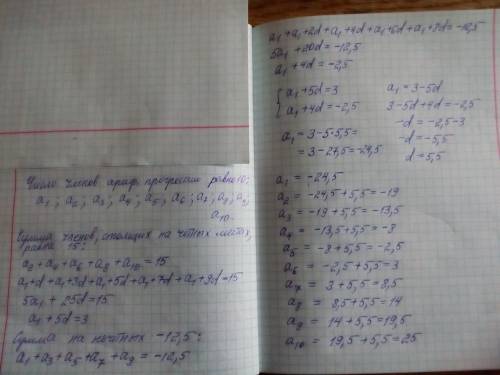 Число членов арифм. прогрессии равно 10:
a₁; a₂; a₃; a₄; a₅; a₆; a₇; a₈; a₉;
a₁₀.
Сумма членов, стоящих на чётных местах,
равна 15:
a₂ + a₄ + a₆ + a₈ + a₁₀ = 15
a₁+d+a₁+3d+a₁+5d+a₁+7d+a₁+9d=15
5a₁ + 25d = 15
a₁ + 5d = 3
Сумма на нечётных -12,5:
a₁ + a₃ + a₅ + a₇ + a₉ = -12,5
a₁ + a₁+2d + a₁+4d + a₁+6d + a₁+8d = -12,5
5a₁ + 20d = -12,5
a₁ + 4d = -2,5
{ a₁ + 5d = 3
a₁ + 4d = -2,5
a₁ = 3 - 5·5,5 =
= 3 - 27,5 = -24,5
a₁ = 3 - 5d
3 - 5d + 4d = -2,5
-d = -2,5 - 3
-d = -5,5
d = 5,5
a₁ = -24,5
a₂ = -24,5 + 5,5 = -19
a₃ = -19 + 5,5 = -13,5
a₄ = -13,5 + 5,5 = -8
a₅ = -8 + 5,5 = -2,5
a₆ = -2,5 + 5,5 = 3
a₇ = 3 + 5,5 = 8,5
a₈ = 8,5 + 5,5 = 14
a₉ = 14 + 5,5 = 19,5
a₁₀ = 19,5 + 5,5 = 25